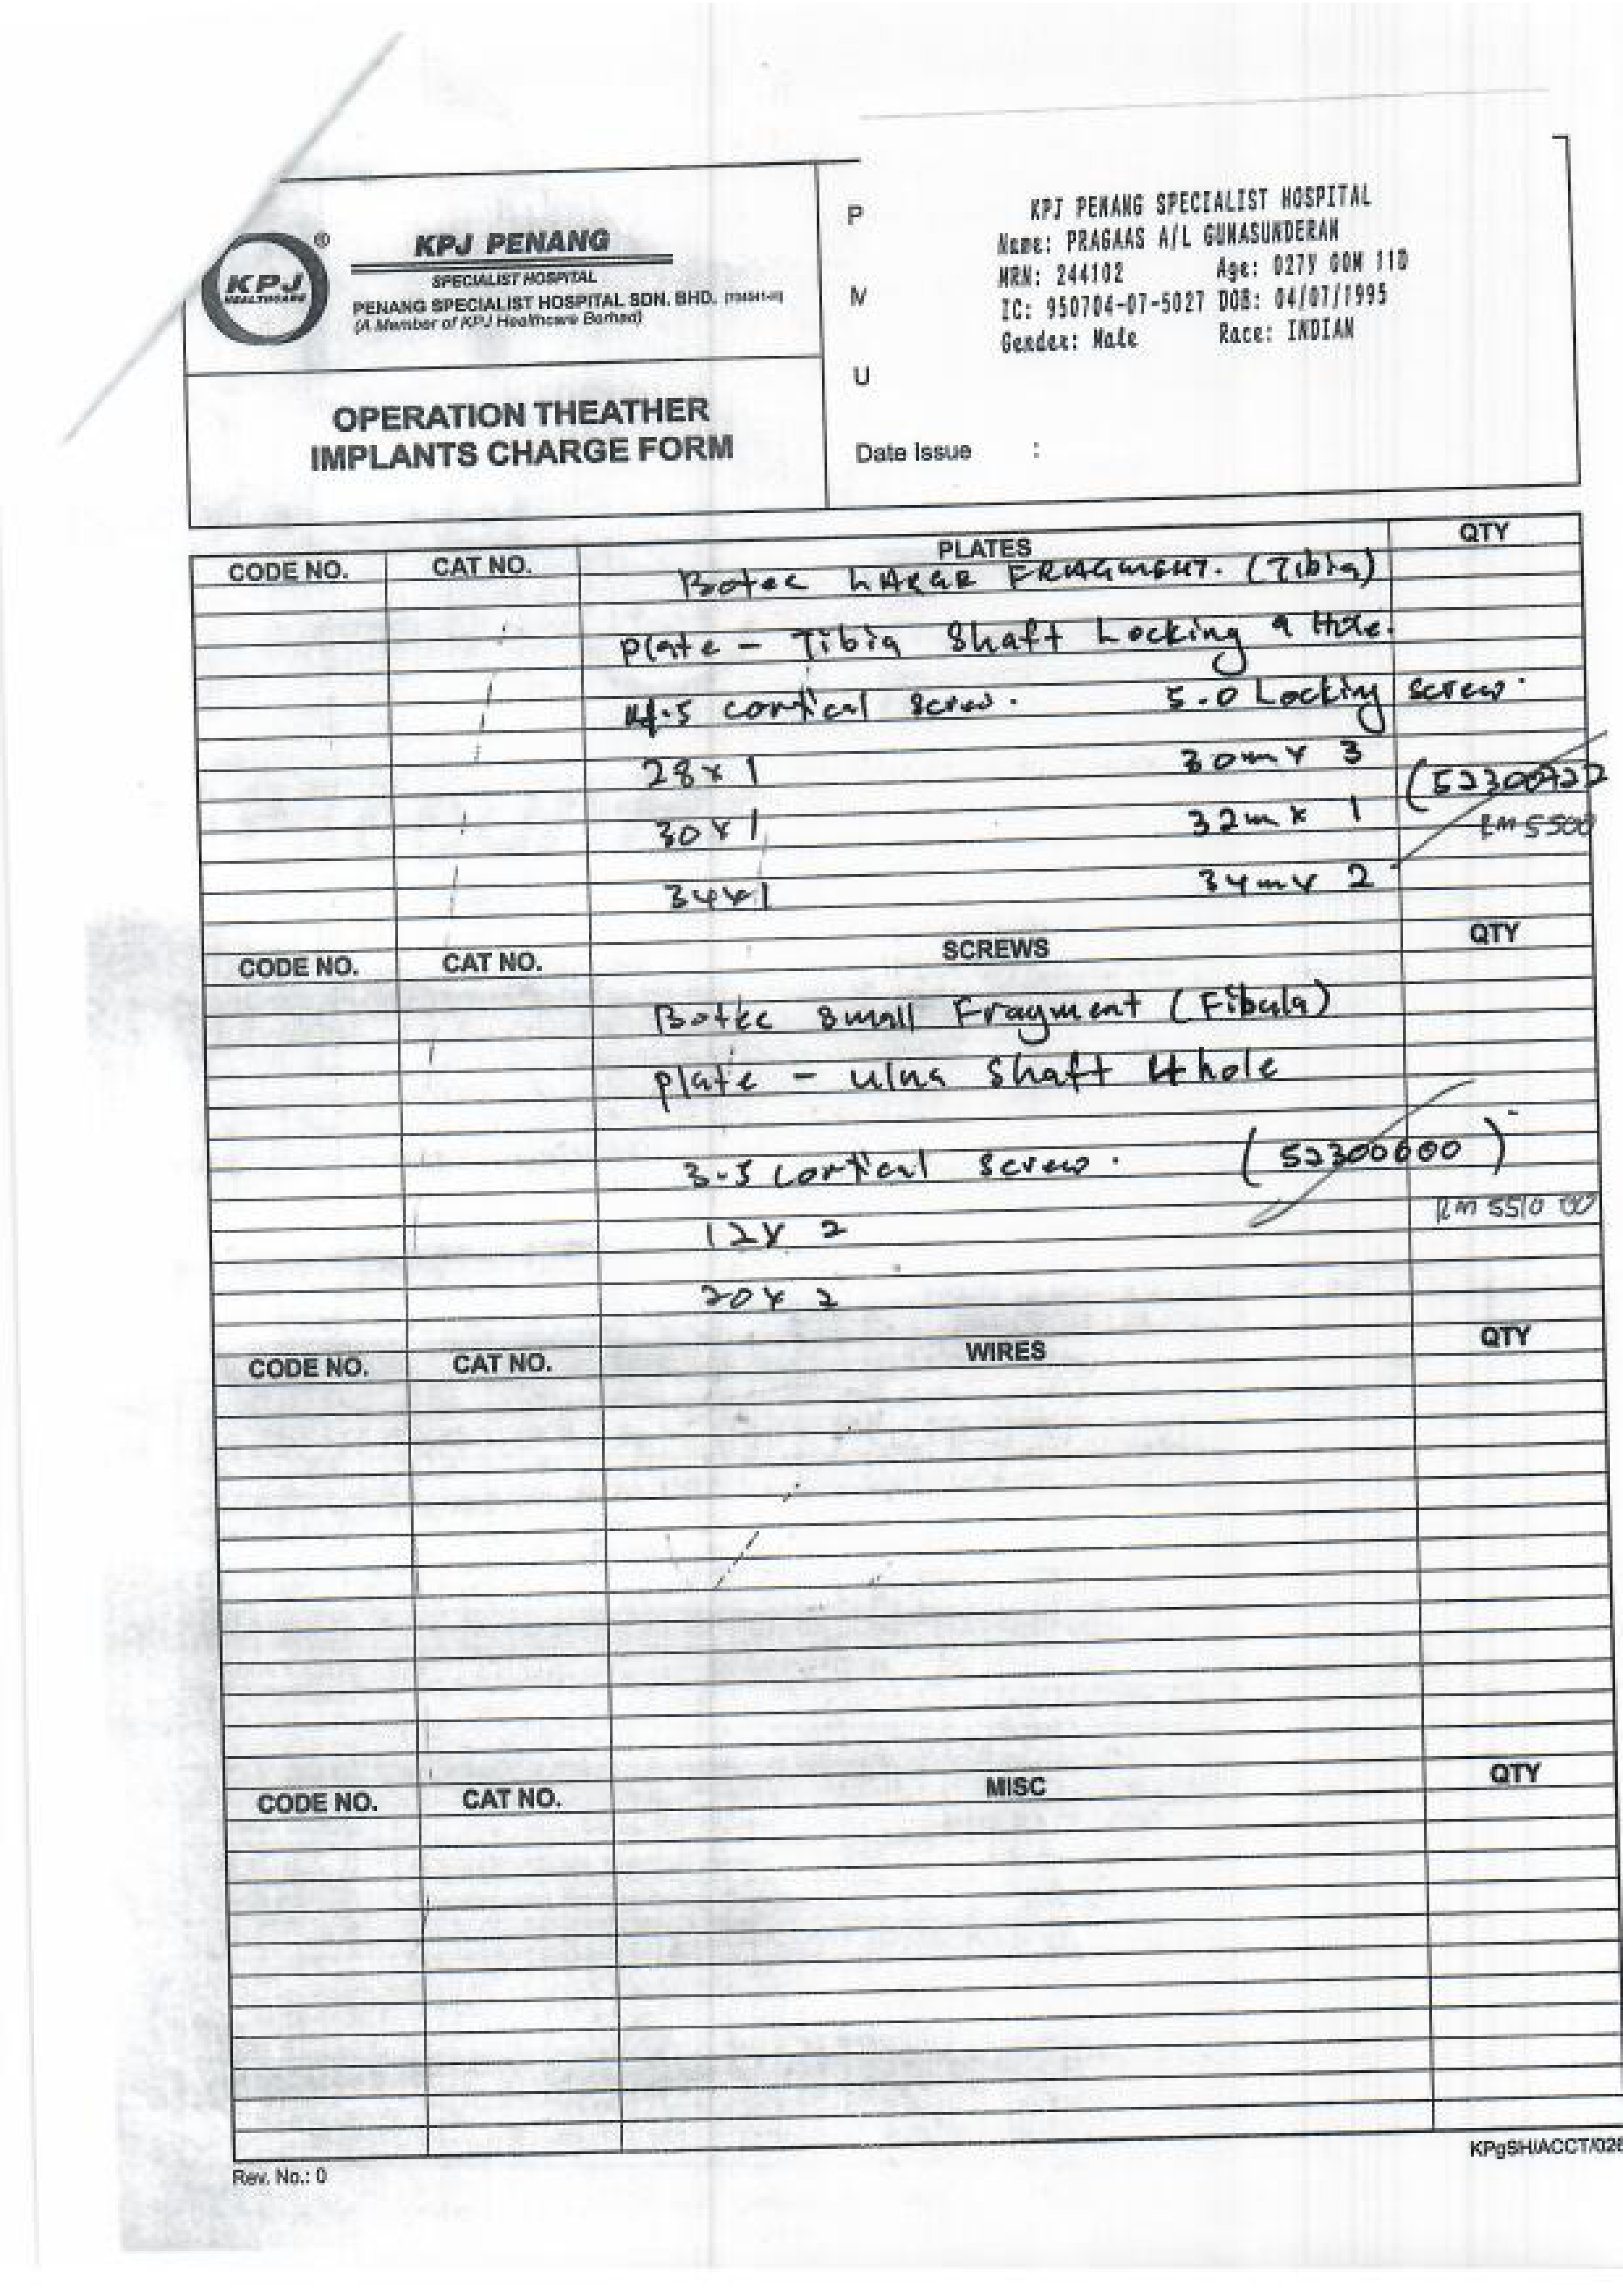 KPJ
HEALTHCARE
®
KPJ PENANG
SPECIALIST HOSPITAL
PENANG SPECIALIST HOSPITAL SDN. BHD.
(A Member of KPJ Healthcare Berhad)
OPERATION THEATHER
IMPLANTS CHARGE FORM
P
M
U
Date Issue :
KPJ PENANG SPECIALIST HOSPITAL
Name: PRAGAAS A/L GUNASUNDERAN
MRN: 244102 Age: 027Y 00M 11D
IC: 950704-07-5027 DOB: 04/07/1995
Gender: Male Race: INDIAN
CODE NO. CAT NO. PLATES QTY
LARGE FRAGMENT. (Tibia)
Plate - Tibia Shaft Locking 9 Hole.
4.5 cortical screw. 5.0 Locking screw.
28x1 30mx 3
30x1 32mx 1
RM 5500
34x1 34mx 2
CODE NO. CAT NO. SCREWS QTY
Small Fragment (Fibula)
plate - ulna Shaft 4hole
3.5 cortical screw. (52300600)
RM 5510 00
12x 2
20x 2
CODE NO. CAT NO. WIRES QTY
CODE NO. CAT NO. MISC QTY
Rev. No.: 0
KPgSH/ACCT/026